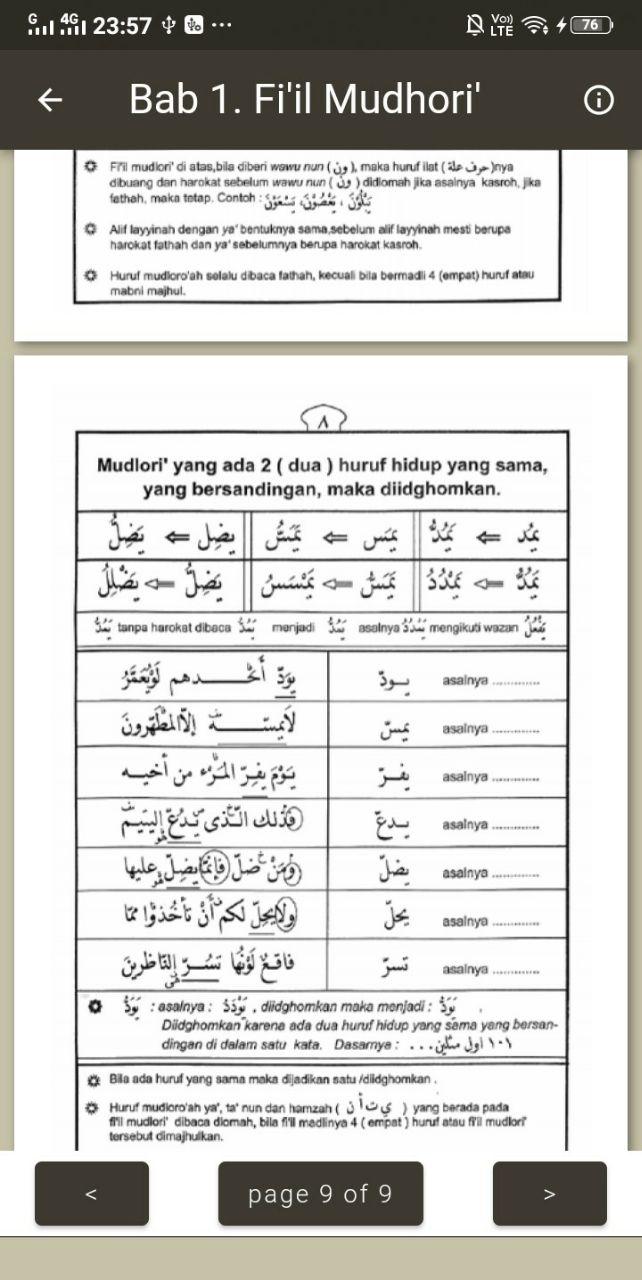 G 4G 23:57 Vo)) LTE 76
Bab 1. Fi'il Mudhori'
Fi'il mudlori' di atas,bila diberi wawu nun ( ون ), maka huruf ilat ( حرف علة )nya
dibuang dan harokat sebelum wawu nun ( ون ) didlomah jika asalnya kasroh, jika
fathah, maka tetap. Contoh :
Alif layyinah dengan ya' bentuknya sama,sebelum alif layyinah mesti berupa
harokat fathah dan ya' sebelumnya berupa harokat kasroh.
Huruf mudloro'ah selalu dibaca fathah, kecuali bila bermadli 4 (empat) huruf atau
mabni majhul.
٨
Mudlori' yang ada 2 ( dua ) huruf hidup yang sama,
yang bersandingan, maka diidghomkan.
يمُد ⇐ يَمُدُّ يمَس ⇐ يَمَسُّ يضِل ⇐ يَضِلُّ
يَمُدُّ ⇐ يَمْدُدُ يَمَسُّ ⇐ يَمْسَسُ يَضِلُّ ⇐ يَضْلِلُ
يَفْعُلُ mengikuti wazan يَمْدُدُ asalnya يَمُدُّ menjadi يَمُدُّ tanpa harokat dibaca يَمُدُّ
يودّ asalnya ............. يَوَدّ أَحَدهم لَوْيُعَمَّرُ
يمسّ asalnya ............. لَايَمسّـه إِلَّاالمطَهّرونَ
يفرّ asalnya ............. يَوْمَ يفِرّ المَرْء من أخيه
يدعّ asalnya ............. فَذٰلك الَّذى يَدُعّ اليتيم
يضلّ asalnya ............. وَمَنْ ضَلّ فَإِنَّمَا يضِلّ عليها
يحلّ asalnya ............. ولَايحِلّ لكم أَنْ تَأخُذوْا ممّا
تسرّ asalnya ............. فاقعٌ لَوْنُهَا تَسُرّ النَّاظرينَ
يَوَدُّ : asalnya : يَوْدَدُ , diidghomkan maka menjadi : يَوَدُّ .
Diidghomkan karena ada dua huruf hidup yang sama yang bersan-
dingan di dalam satu kata. Dasarnya : ١٠١ اول مثلين ...
Bila ada huruf yang sama maka dijadikan satu /diidghomkan .
Huruf mudloro'ah ya', ta' nun dan hamzah ( ي ت أ ن ) yang berada pada
fi'il mudlori' dibaca dlomah, bila fi'il madlinya 4 ( empat ) huruf atau fi'il mudlori'
tersebut dimajhulkan.
< page 9 of 9 >